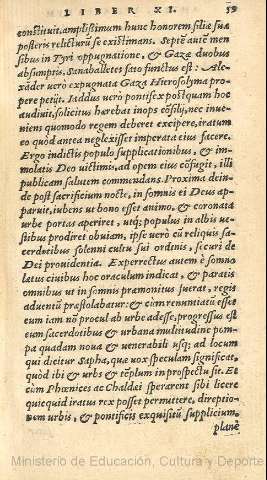 LIBER XI. 59
constituit, amplissimum hunc honorem filiæ suæ
posteris relicturũ se existimans. Septẽ autẽ men
sibus in Tyri oppugnatione, & Gazæ duobus
absumptis, Sanaballetes fato functus est: Ale-
xãder verò expugnata Gaza Hierosolyma pro
pere petijt. Iaddus verò pontifex postquam hoc
audiuit, solicitus hærebat inops cõsilij, nec inue-
niens quomodo regem deberet excipere, iratum
eo quòd antea neglexisset imperata eius facere.
Ergo indictis populo supplicationibus, & im-
molatis Deo victimis, ad opem eius cõfugit, illi
publicam salutem commendans. Proxima dein-
de post sacrificium nocte, in somnis ei Deus ap-
paruit, iubens ut bono esset animo, & coronata
urbe portas aperiret, utq; populus in albis ve-
stibus prodiret obuiam, ipse verò cũ reliquis sa-
cerdotibus solenni cultu sui ordinis, securi de
Dei prouidentia. Experrectus autem è somno
lætus ciuibus hoc oraculum indicat, & paratis
omnibus ut in somnis præmonitus fuerat, regis
aduentũ præstolabatur: & cùm renuntiatũ esset
eum iam nõ procul ab urbe adesse, progressus est
cum sacerdotibus & urbana multitudine pom-
pa quadam noua & venerabili usq; ad locum
qui dicitur Sapha, quæ vox speculam significat,
quòd ibi & urbs & tẽplum in prospectu sit. Et
cùm Phœnices ac Chaldæi sperarent sibi licere
quicquid iratus rex posset permittere, direptio-
nem urbis, & pontificis exquisitũ supplicium,
planè
Ministerio de Educación, Cultura y Deporte